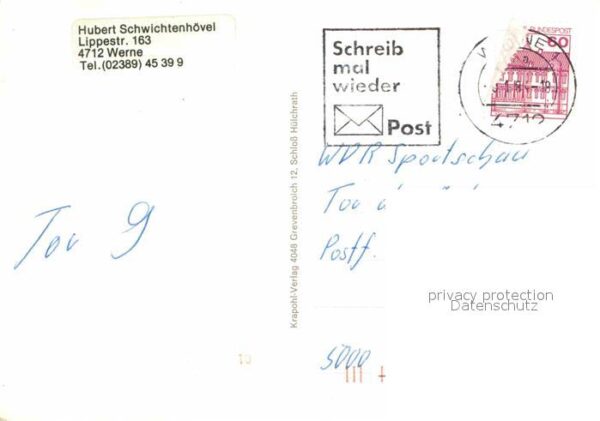 Hubert Schwichtenhövel
Lippestr. 163
4712 Werne
Tel.(02389) 45 39 9
Schreib
mal
wieder
Post
60
4712
Krapohl-Verlag 4048 Grevenbroich 12, Schloß Hülchrath
Tor 9
WDR Sportschau
Tor
Postf.
5000
privacy protection
Datenschutz
10